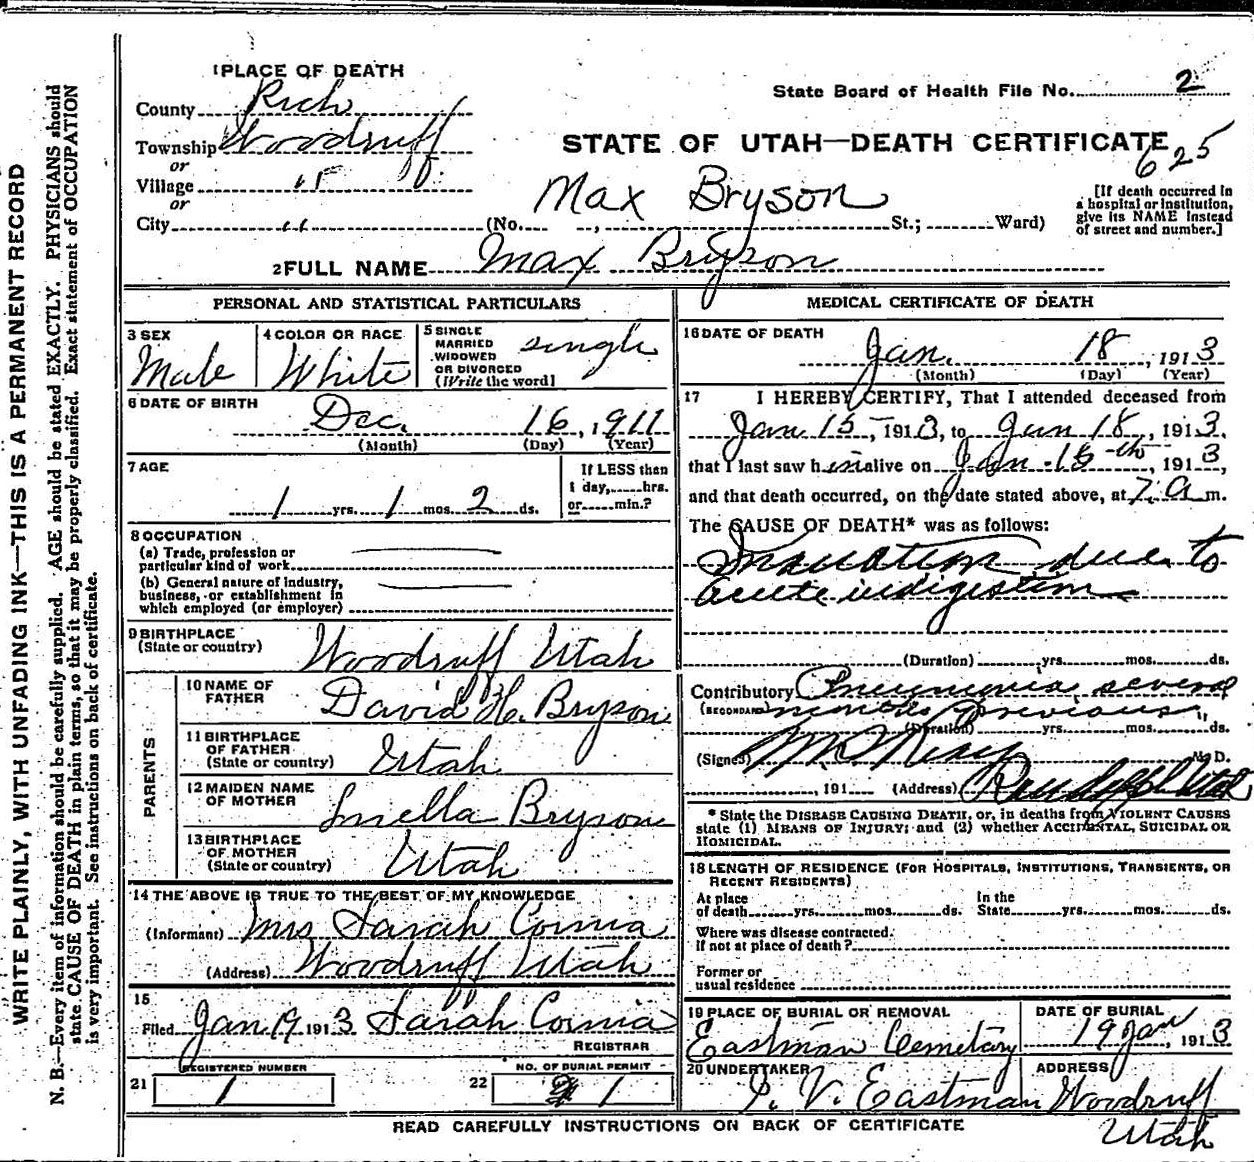 1 PLACE OF DEATH
County Rich
State Board of Health File No. 2
Township Woodruff
STATE OF UTAH—DEATH CERTIFICATE
625
or
Village "
or
City " (No. , Max Bryson St.; Ward)
[If death occurred in a hospital or institution, give its NAME instead of street and number.]
2 FULL NAME Max Bryson
PERSONAL AND STATISTICAL PARTICULARS
3 SEX
Male
4 COLOR OR RACE
White
5 SINGLE MARRIED WIDOWED OR DIVORCED (Write the word)
single
6 DATE OF BIRTH
Dec. 16, 1911
(Month) (Day) (Year)
7 AGE
1 yrs. 1 mos. 2 ds.
If LESS than 1 day, hrs. or min.?
8 OCCUPATION
(a) Trade, profession or particular kind of work
(b) General nature of industry, business, or establishment in which employed (or employer)
9 BIRTHPLACE
(State or country) Woodruff Utah
PARENTS
10 NAME OF FATHER David H. Bryson
11 BIRTHPLACE OF FATHER (State or country) Utah
12 MAIDEN NAME OF MOTHER Bryson
13 BIRTHPLACE OF MOTHER (State or country) Utah
14 THE ABOVE IS TRUE TO THE BEST OF MY KNOWLEDGE
(Informant) Mrs Sarah Cornia
(Address) Woodruff Utah
15
Filed Jan 19 1913 Sarah Cornia
REGISTRAR
21 REGISTERED NUMBER 1
22 NO. OF BURIAL PERMIT 1
MEDICAL CERTIFICATE OF DEATH
16 DATE OF DEATH
Jan. 18, 1913
(Month) (Day) (Year)
17 I HEREBY CERTIFY, That I attended deceased from
Jan 15, 1913, to Jan 18, 1913,
that I last saw him alive on Jan. 15th, 1913,
and that death occurred, on the date stated above, at 7. a m.
The CAUSE OF DEATH* was as follows:
due to
acute indigestion
(Duration) yrs. mos. ds.
Contributory Pneumonia several
(SECONDARY) months previous
(Duration) yrs. mos. ds.
(Signed) M. D.
191 (Address) Randolph Utah
* State the DISEASE CAUSING DEATH, or, in deaths from VIOLENT CAUSES
state (1) MEANS OF INJURY; and (2) whether ACCIDENTAL, SUICIDAL OR
HOMICIDAL.
18 LENGTH OF RESIDENCE (FOR HOSPITALS, INSTITUTIONS, TRANSIENTS, OR
RECENT RESIDENTS)
At place of death yrs. mos. ds. In the State yrs. mos. ds.
Where was disease contracted.
If not at place of death?
Former or
usual residence
19 PLACE OF BURIAL OR REMOVAL
Eastman Cemetary
DATE OF BURIAL
19 Jan, 1913
20 UNDERTAKER
V. Eastman
ADDRESS
Woodruff
Utah
READ CAREFULLY INSTRUCTIONS ON BACK OF CERTIFICATE
WRITE PLAINLY, WITH UNFADING INK—THIS IS A PERMANENT RECORD
N. B.—Every item of information should be carefully supplied. AGE should be stated EXACTLY. PHYSICIANS should
state CAUSE OF DEATH in plain terms, so that it may be properly classified. Exact statement of OCCUPATION
is very important. See instructions on back of certificate.